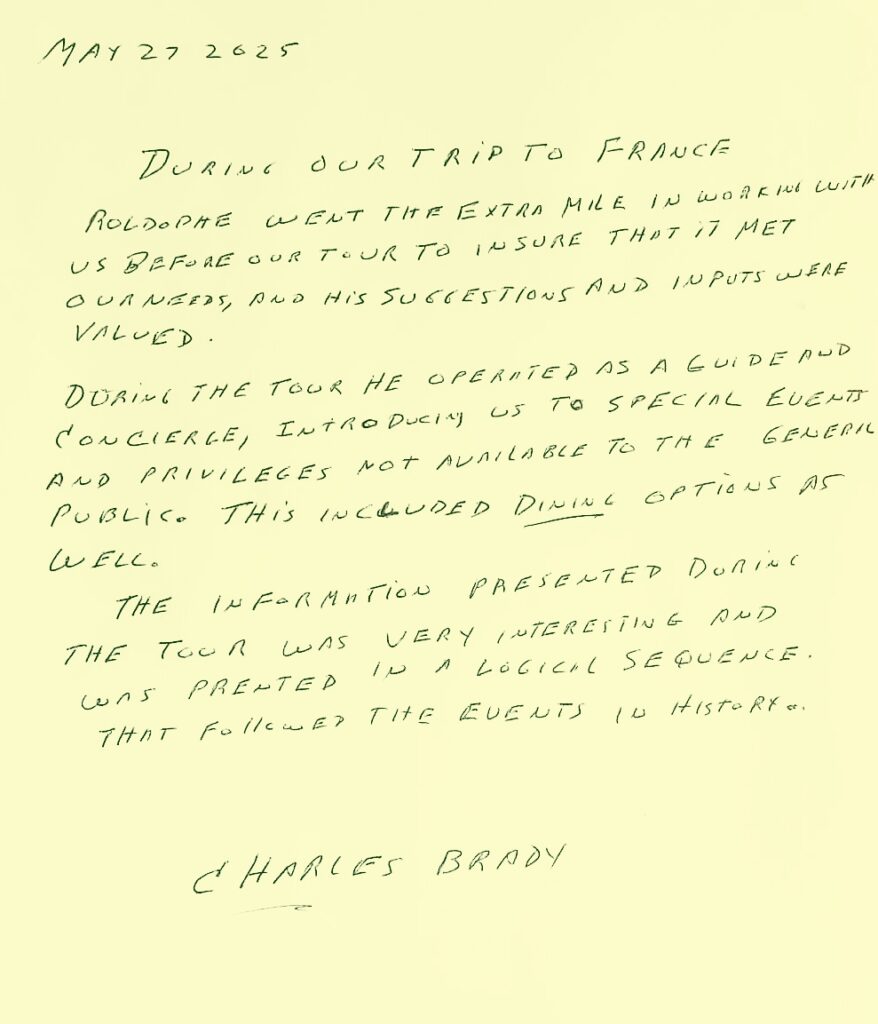 MAY 27 2025
DURING OUR TRIP TO FRANCE
ROLDOPHE WENT THE EXTRA MILE IN WORKING WITH
US BEFORE OUR TOUR TO INSURE THAT IT MET
OUR NEEDS, AND HIS SUGGESTIONS AND INPUTS WERE
VALUED.
DURING THE TOUR HE OPERATED AS A GUIDE AND
CONCIERGE, INTRODUCING US TO SPECIAL EVENTS
AND PRIVILEGES NOT AVAILABLE TO THE GENERAL
PUBLIC. THIS INCLUDED DINING OPTIONS AS
WELL.
THE INFORMATION PRESENTED DURING
THE TOUR WAS VERY INTERESTING AND
WAS PRENTED IN A LOGICAL SEQUENCE.
THAT FOLLOWED THE EVENTS IN HISTORY.
CHARLES BRADY